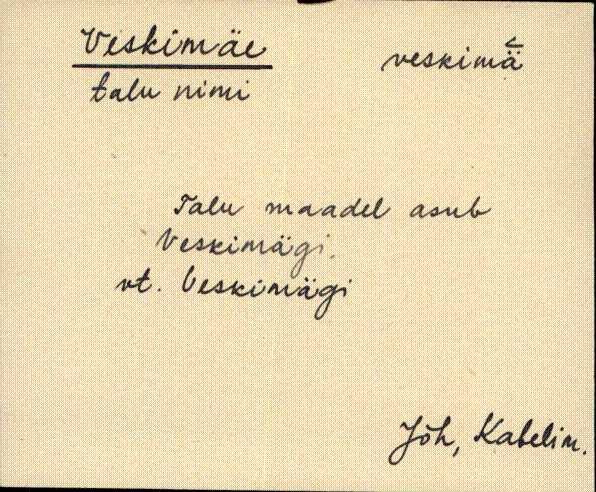 Veskimäe
veskimä
talu nimi
Talu maadel asub
Veskimägi.
vt. Veskimägi
Jõh, Kabelim.